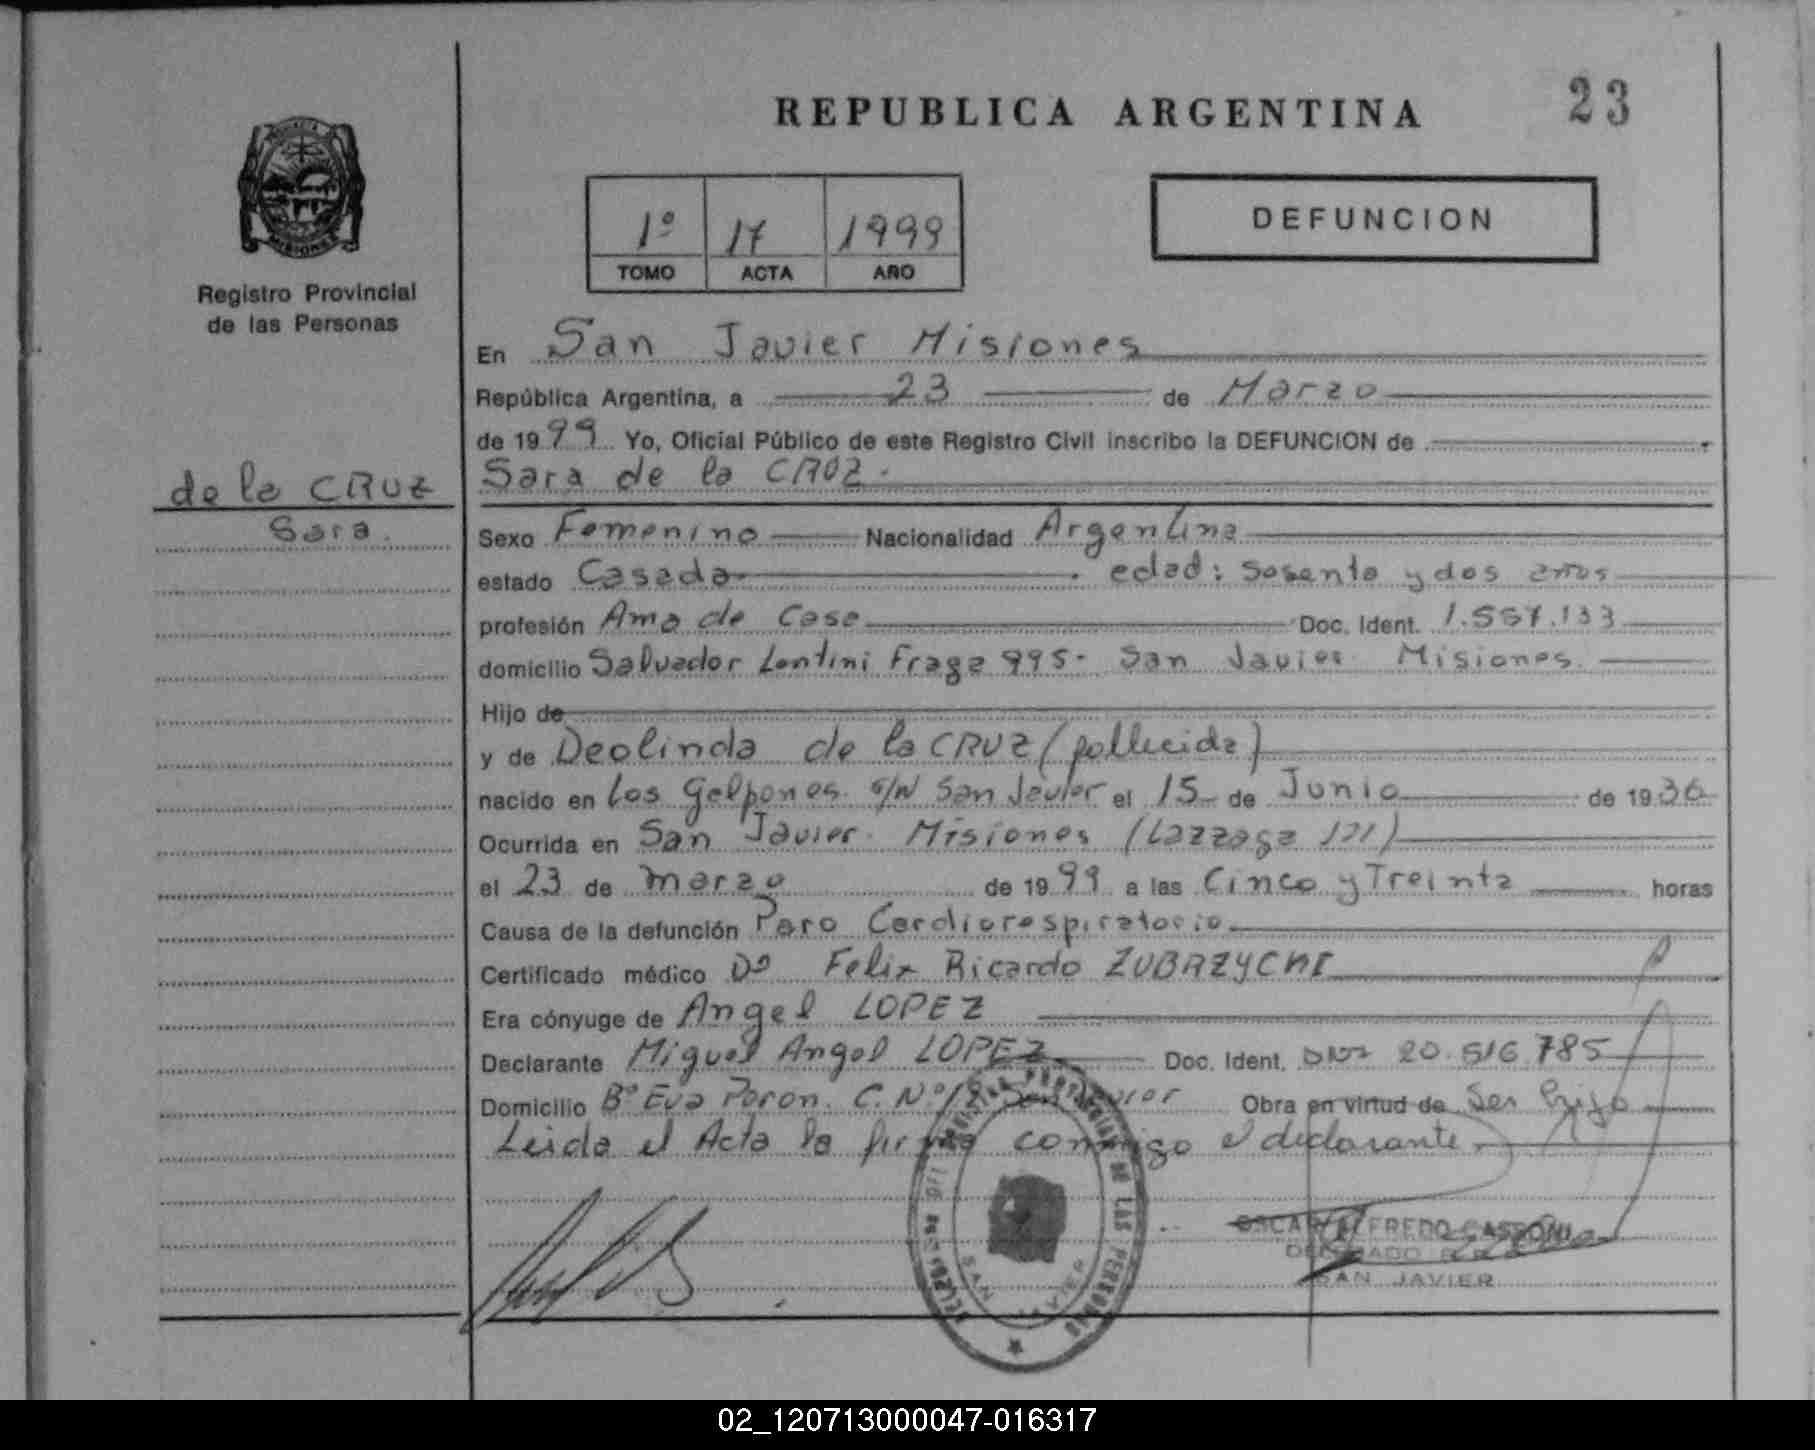 REPUBLICA ARGENTINA
23
MISIONES
Registro Provincial
de las Personas
1º 17 1999
TOMO ACTA AÑO
DEFUNCION
En San Javier Misiones
República Argentina, a 23 de Marzo
de 1999 Yo, Oficial Público de este Registro Civil inscribo la DEFUNCION de
de la CRUZ
Sara.
Sara de la CRUZ.
Sexo Femenino Nacionalidad Argentina
estado Casada. edad: sesenta y dos años
profesión Ama de Casa Doc. Ident. 1.557.133
domicilio Salvador Lentini Fraga 995. San Javier Misiones.
Hijo de
y de Deolinda de la CRUZ (fallecida)
nacido en Los Galpones s/N San Javier el 15 de Junio de 1936
Ocurrida en San Javier. Misiones (Lazzaga 121)
el 23 de marzo de 1999 a las Cinco y Treinta horas
Causa de la defunción Paro Cardiorespiratorio.
Certificado médico Dº Felix Ricardo ZUBRZYCKI
Era cónyuge de Angel LOPEZ
Declarante Miguel Angel LOPEZ Doc. Ident. DNI 20.516.785
Domicilio Bº Eva Peron. C. Nº 12 San Javier Obra en virtud de Ser hijo
Leida el Acta la firma conmigo el declarante.
DE LAS PERSONAS
SAN JAVIER
OSCAR ALFREDO CASSONI
DELEGADO
SAN JAVIER
02_120713000047-016317